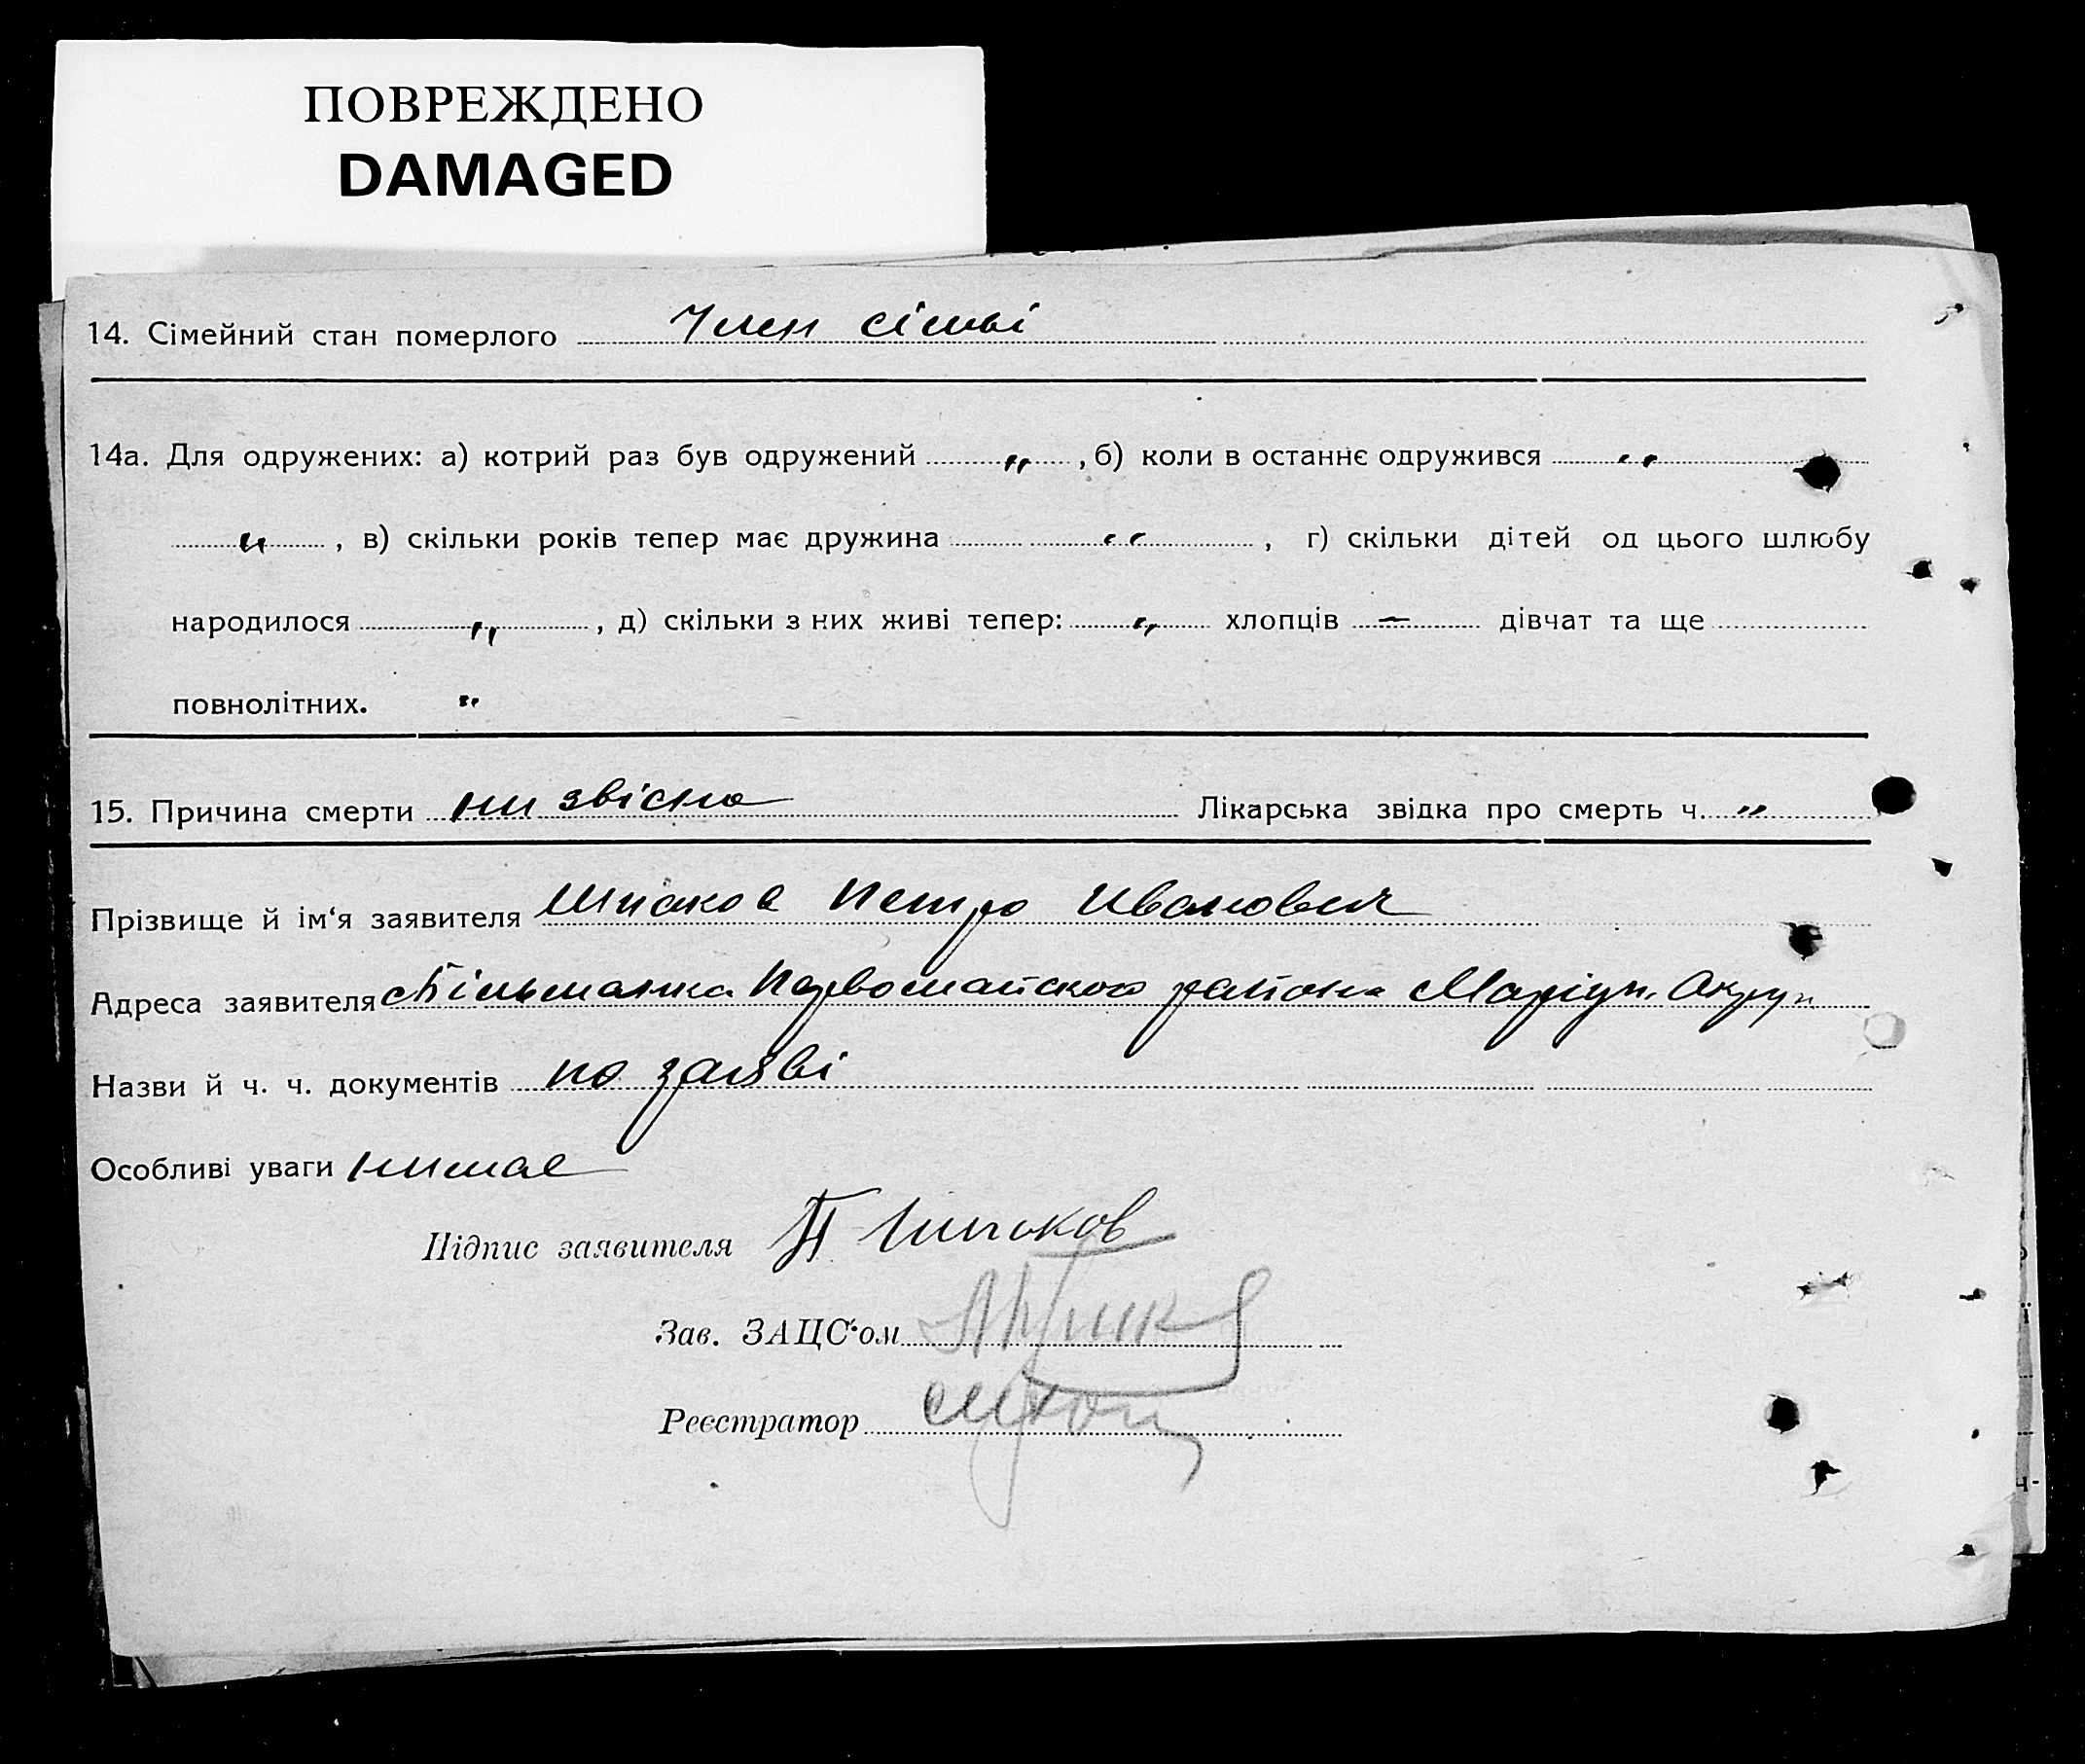 ПОВРЕЖДЕНО
DAMAGED
14. Сімейний стан померлого Член сімьі
14а. Для одружених: а) котрий раз був одружений „ , б) коли в останнє одружився „
„ , в) скільки років тепер має дружина „ , г) скільки дітей од цього шлюбу
народилося „ , д) скільки з них живі тепер: „ хлопців — дівчат та ще
повнолітних. „
15. Причина смерти ни звісна Лікарська звідка про смерть ч. „
Прізвище й ім‘я заявителя Петро Иванович
Адреса заявителя с Більманка Первомайского района Маріуп. Округ
Назви й ч. ч. документів по заяві
Особливі уваги нимае
Підпис заявителя П
Зав. ЗАЦС‘ом
Реєстратор